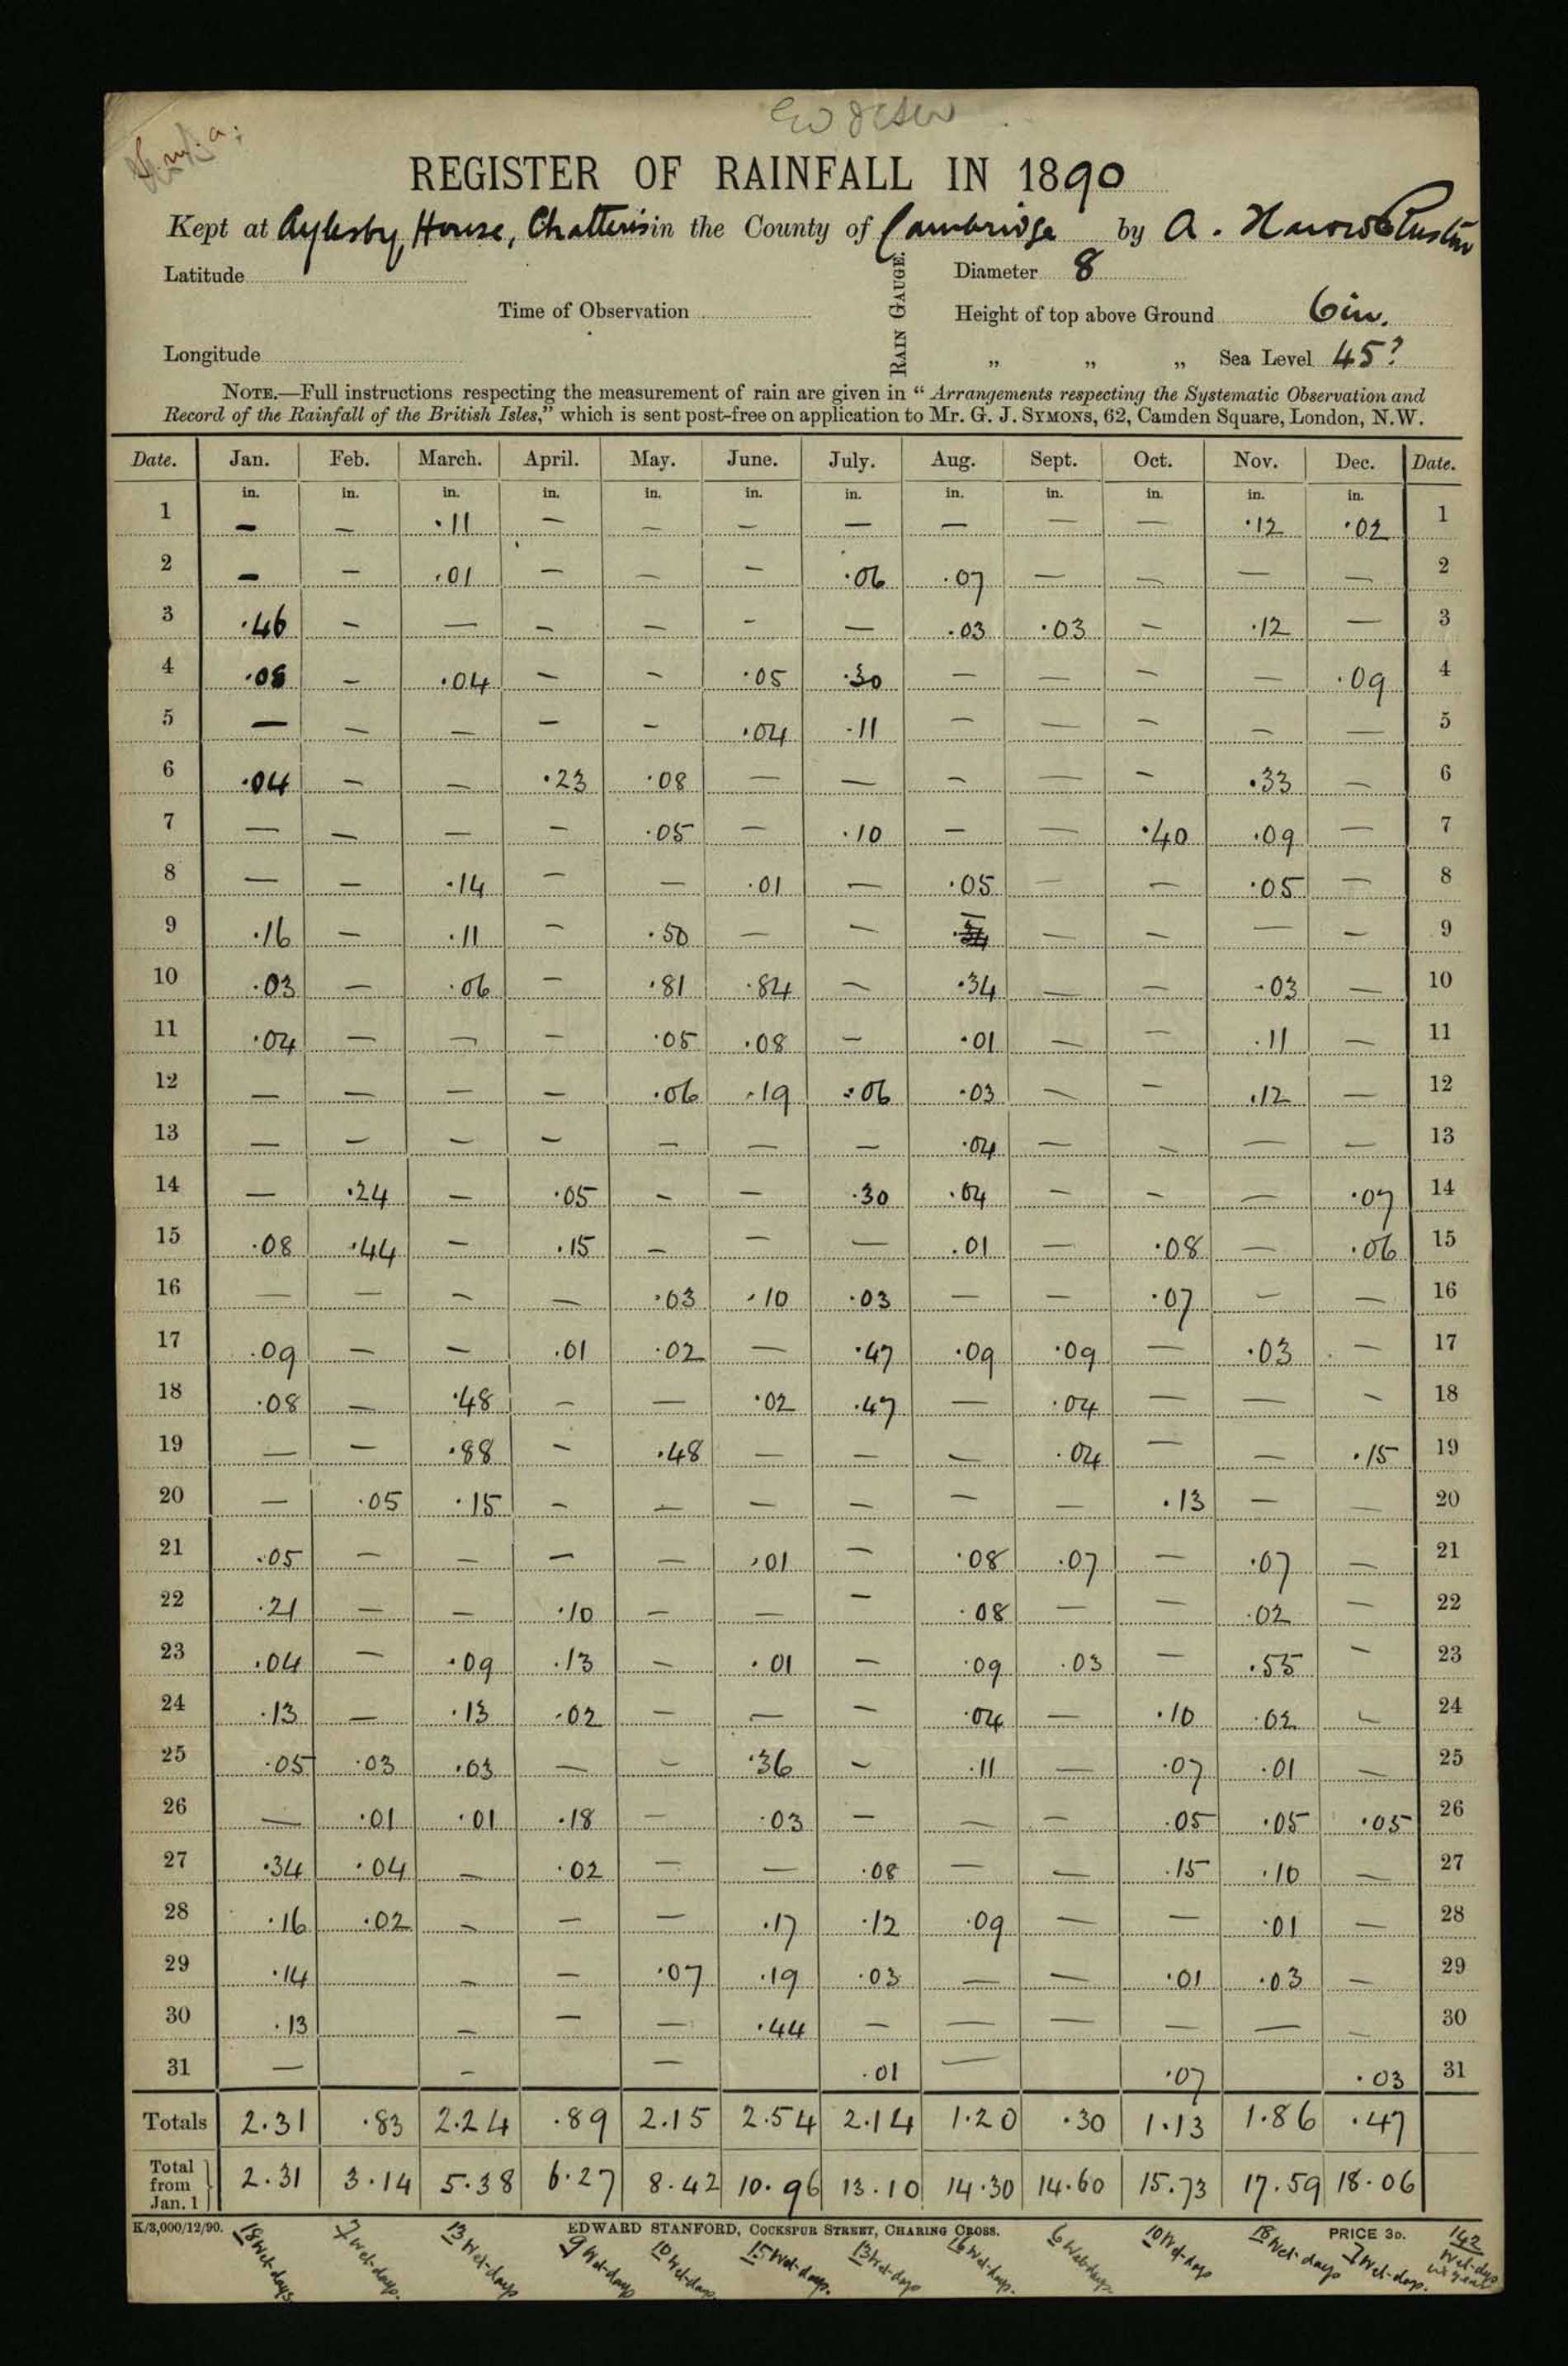 REGISTER OF RAINFALL IN 1890
Kept at Aylesby House, Chatteris in the County of Cambridge by A.
Latitude
Diameter 8
Time of Observation
RAIN GAUGE.
Height of top above Ground 6in.
Longitude
„ „ „ Sea Level 45?
NOTE.—Full instructions respecting the measurement of rain are given in “ Arrangements respecting the Systematic Observation and
Record of the Rainfall of the British Isles,” which is sent post-free on application to Mr. G. J. SYMONS, 62, Camden Square, London, N.W.
Date. Jan. Feb. March. April. May. June. July. Aug. Sept. Oct. Nov. Dec. Date.
in. in. in. in. in. in. in. in. in. in. in. in.
1 — — .11 — — — — — — — .12 .02 1
2 — — .01 — — — .06 .07 — — — — 2
3 .46 — — — — — — .03 .03 — .12 — 3
4 .08 — .04 — — .05 .30 — — — — .09 4
5 — — — — — .04 .11 — — — — — 5
6 .04 — — .23 .08 — — — — — .33 — 6
7 — — — — .05 — .10 — — .40 .09 — 7
8 — — .14 — — .01 — .05 — — .05 — 8
9 .16 — .11 — .50 — — — — — — — 9
10 .03 — .06 — .81 .84 — .34 — — .03 — 10
11 .04 — — — .05 .08 — .01 — — .11 — 11
12 — — — — .06 .19 .06 .03 — — .12 — 12
13 — — — — — — — .04 — — — — 13
14 — .24 — .05 — — .30 .04 — — — .07 14
15 .08 .44 — .15 — — — .01 — .08 — .06 15
16 — — — — .03 .10 .03 — — .07 — — 16
17 .09 — — .01 .02 — .47 .09 .09 — .03 — 17
18 .08 — .48 — — .02 .47 — .04 — — — 18
19 — — .88 — .48 — — — .04 — — .15 19
20 — .05 .15 — — — — — — .13 — — 20
21 .05 — — — — .01 — .08 .07 — .07 — 21
22 .21 — — .10 — — — .08 — — .02 — 22
23 .04 — .09 .13 — .01 — .09 .03 — .55 — 23
24 .13 — .13 .02 — — — .04 — .10 .02 — 24
25 .05 .03 .03 — — .36 — .11 — .07 .01 — 25
26 — .01 .01 .18 — .03 — — — .05 .05 .05 26
27 .34 .04 — .02 — — .08 — — .15 .10 — 27
28 .16 .02 — — — .17 .12 .09 — — .01 — 28
29 .14 — — .07 .19 .03 — — .01 .03 — 29
30 .13 — — — .44 — — — — — — 30
31 — — — .01 — .07 .03 31
Totals 2.31 .83 2.24 .89 2.15 2.54 2.14 1.20 .30 1.13 1.86 .47
Total from Jan. 1 2.31 3.14 5.38 6.27 8.42 10.96 13.10 14.30 14.60 15.73 17.59 18.06
K/3,000/12/90. EDWARD STANFORD, COCKSPUR STREET, CHARING CROSS. PRICE 3D.
18 Wet-days 7 Wet-days. 13 Wet-days 9 Wet-days 10 Wet-days 15 Wet-days. 13 Wet-days 16 Wet-days. 6 Wet-days. 10 Wet-days 18 Wet-days 7 Wet-days. 142 Wet-days in year